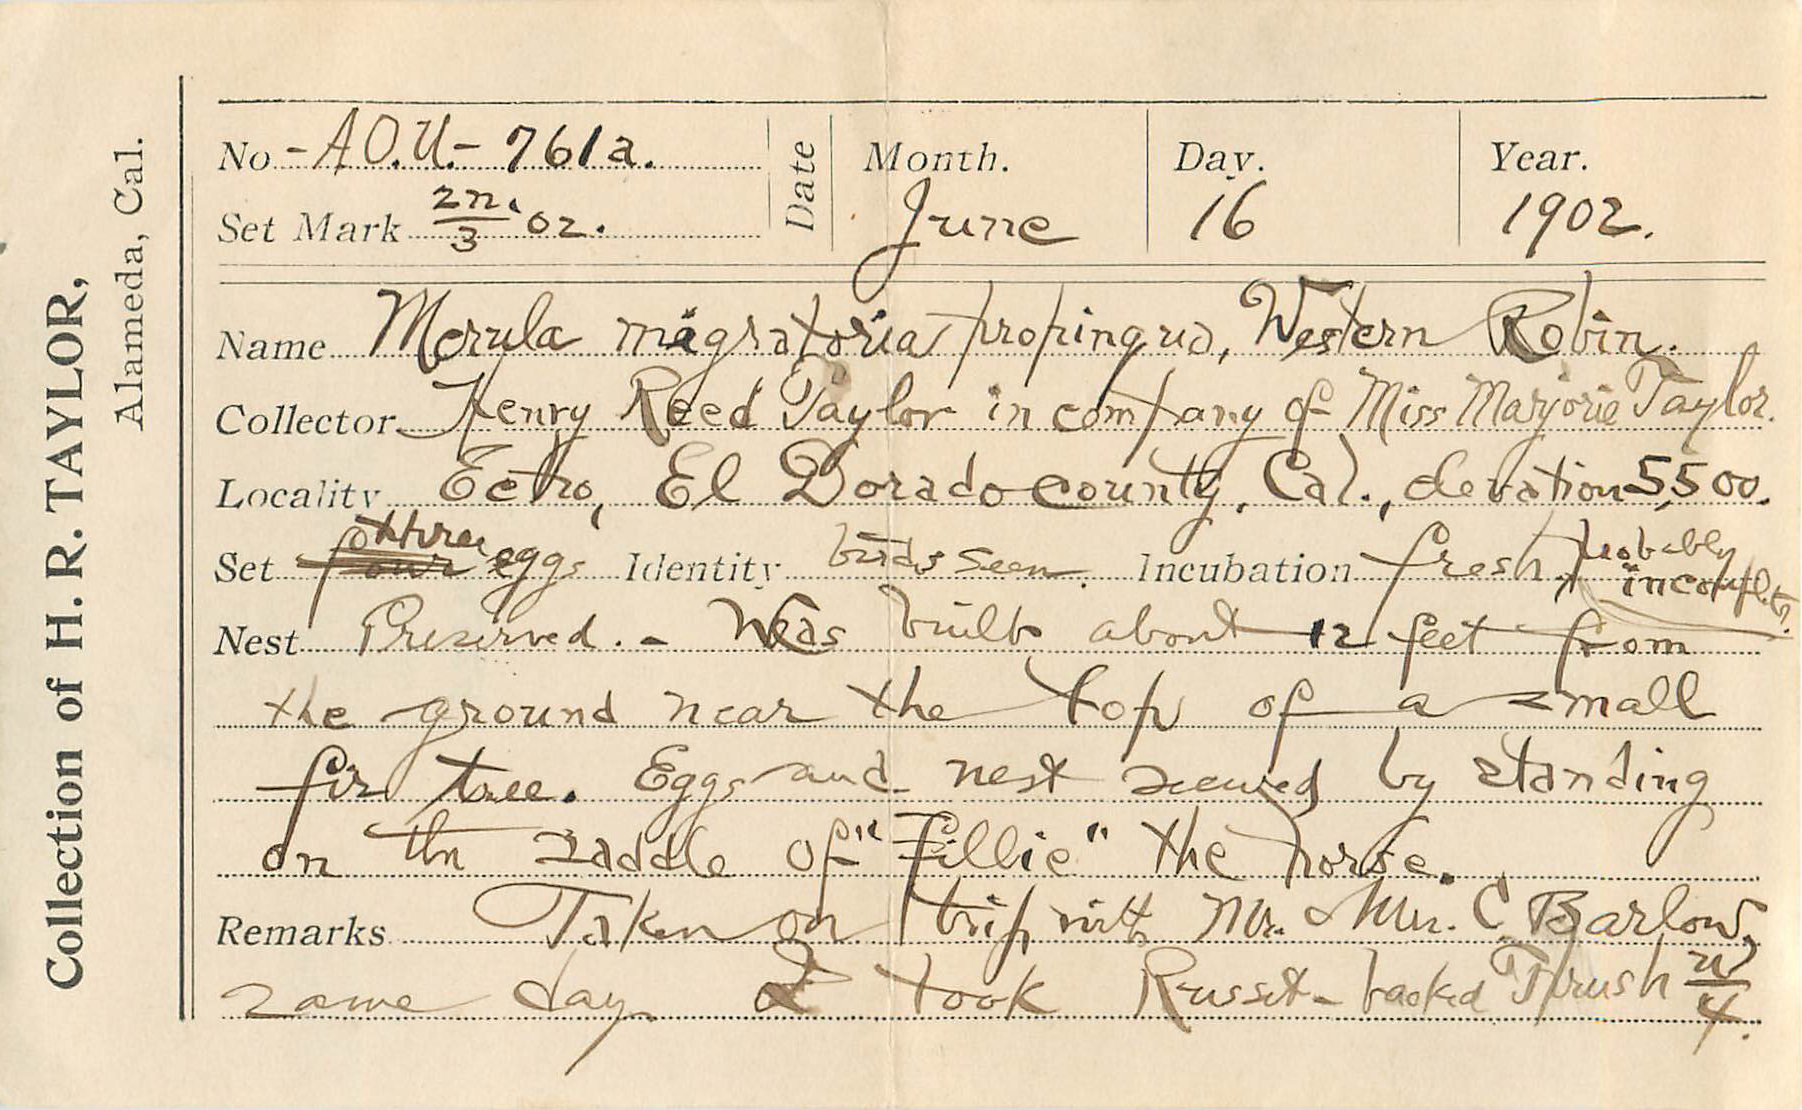 Collection of H. R. TAYLOR,
Alameda, Cal.
No. - A.O.U. - 761a.
Set Mark 2n./3 '02.
Date
Month.
June
Day.
16
Year.
1902.
Name Merula migratoria propinqua, Western Robin.
Collector Henry Reed Taylor in company of Miss Marjorie Taylor.
Locality Echo, El Dorado County, Cal., elevation 5,500.
Set four three eggs Identity birds seen. Incubation fresh, probably incomplete.
Nest Preserved. - Was built about 12 feet from
the ground near the top of a small
fir tree. Eggs and nest secured by standing
on the saddle of "Fillie" the horse.
Remarks Taken on trip with Mr. & Mrs. C Barlow,
same day I took Russet-backed Thrush n/4.